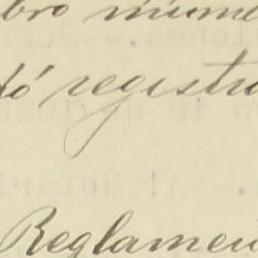 bro núme
tó registr
Reglamen